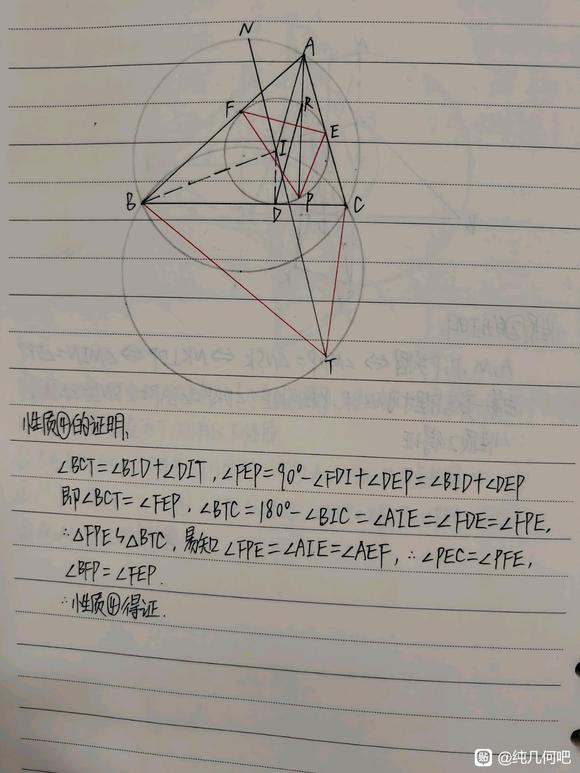 N
A
F
R
E
I
B
D
P
C
T
性质④的证明、
∠BCT=∠BID+∠DIT, ∠FEP=90°-∠FDI+∠DEP=∠BID+∠DEP
即∠BCT=∠FEP, ∠BTC=180°-∠BIC=∠AIE=∠FDE=∠FPE,
∴△FPE∽△BTC, 易知∠FPE=∠AIE=∠AEF, ∴∠PEC=∠PFE,
∠BFP=∠FEP.
∴性质④得证.
贴 @纯几何吧